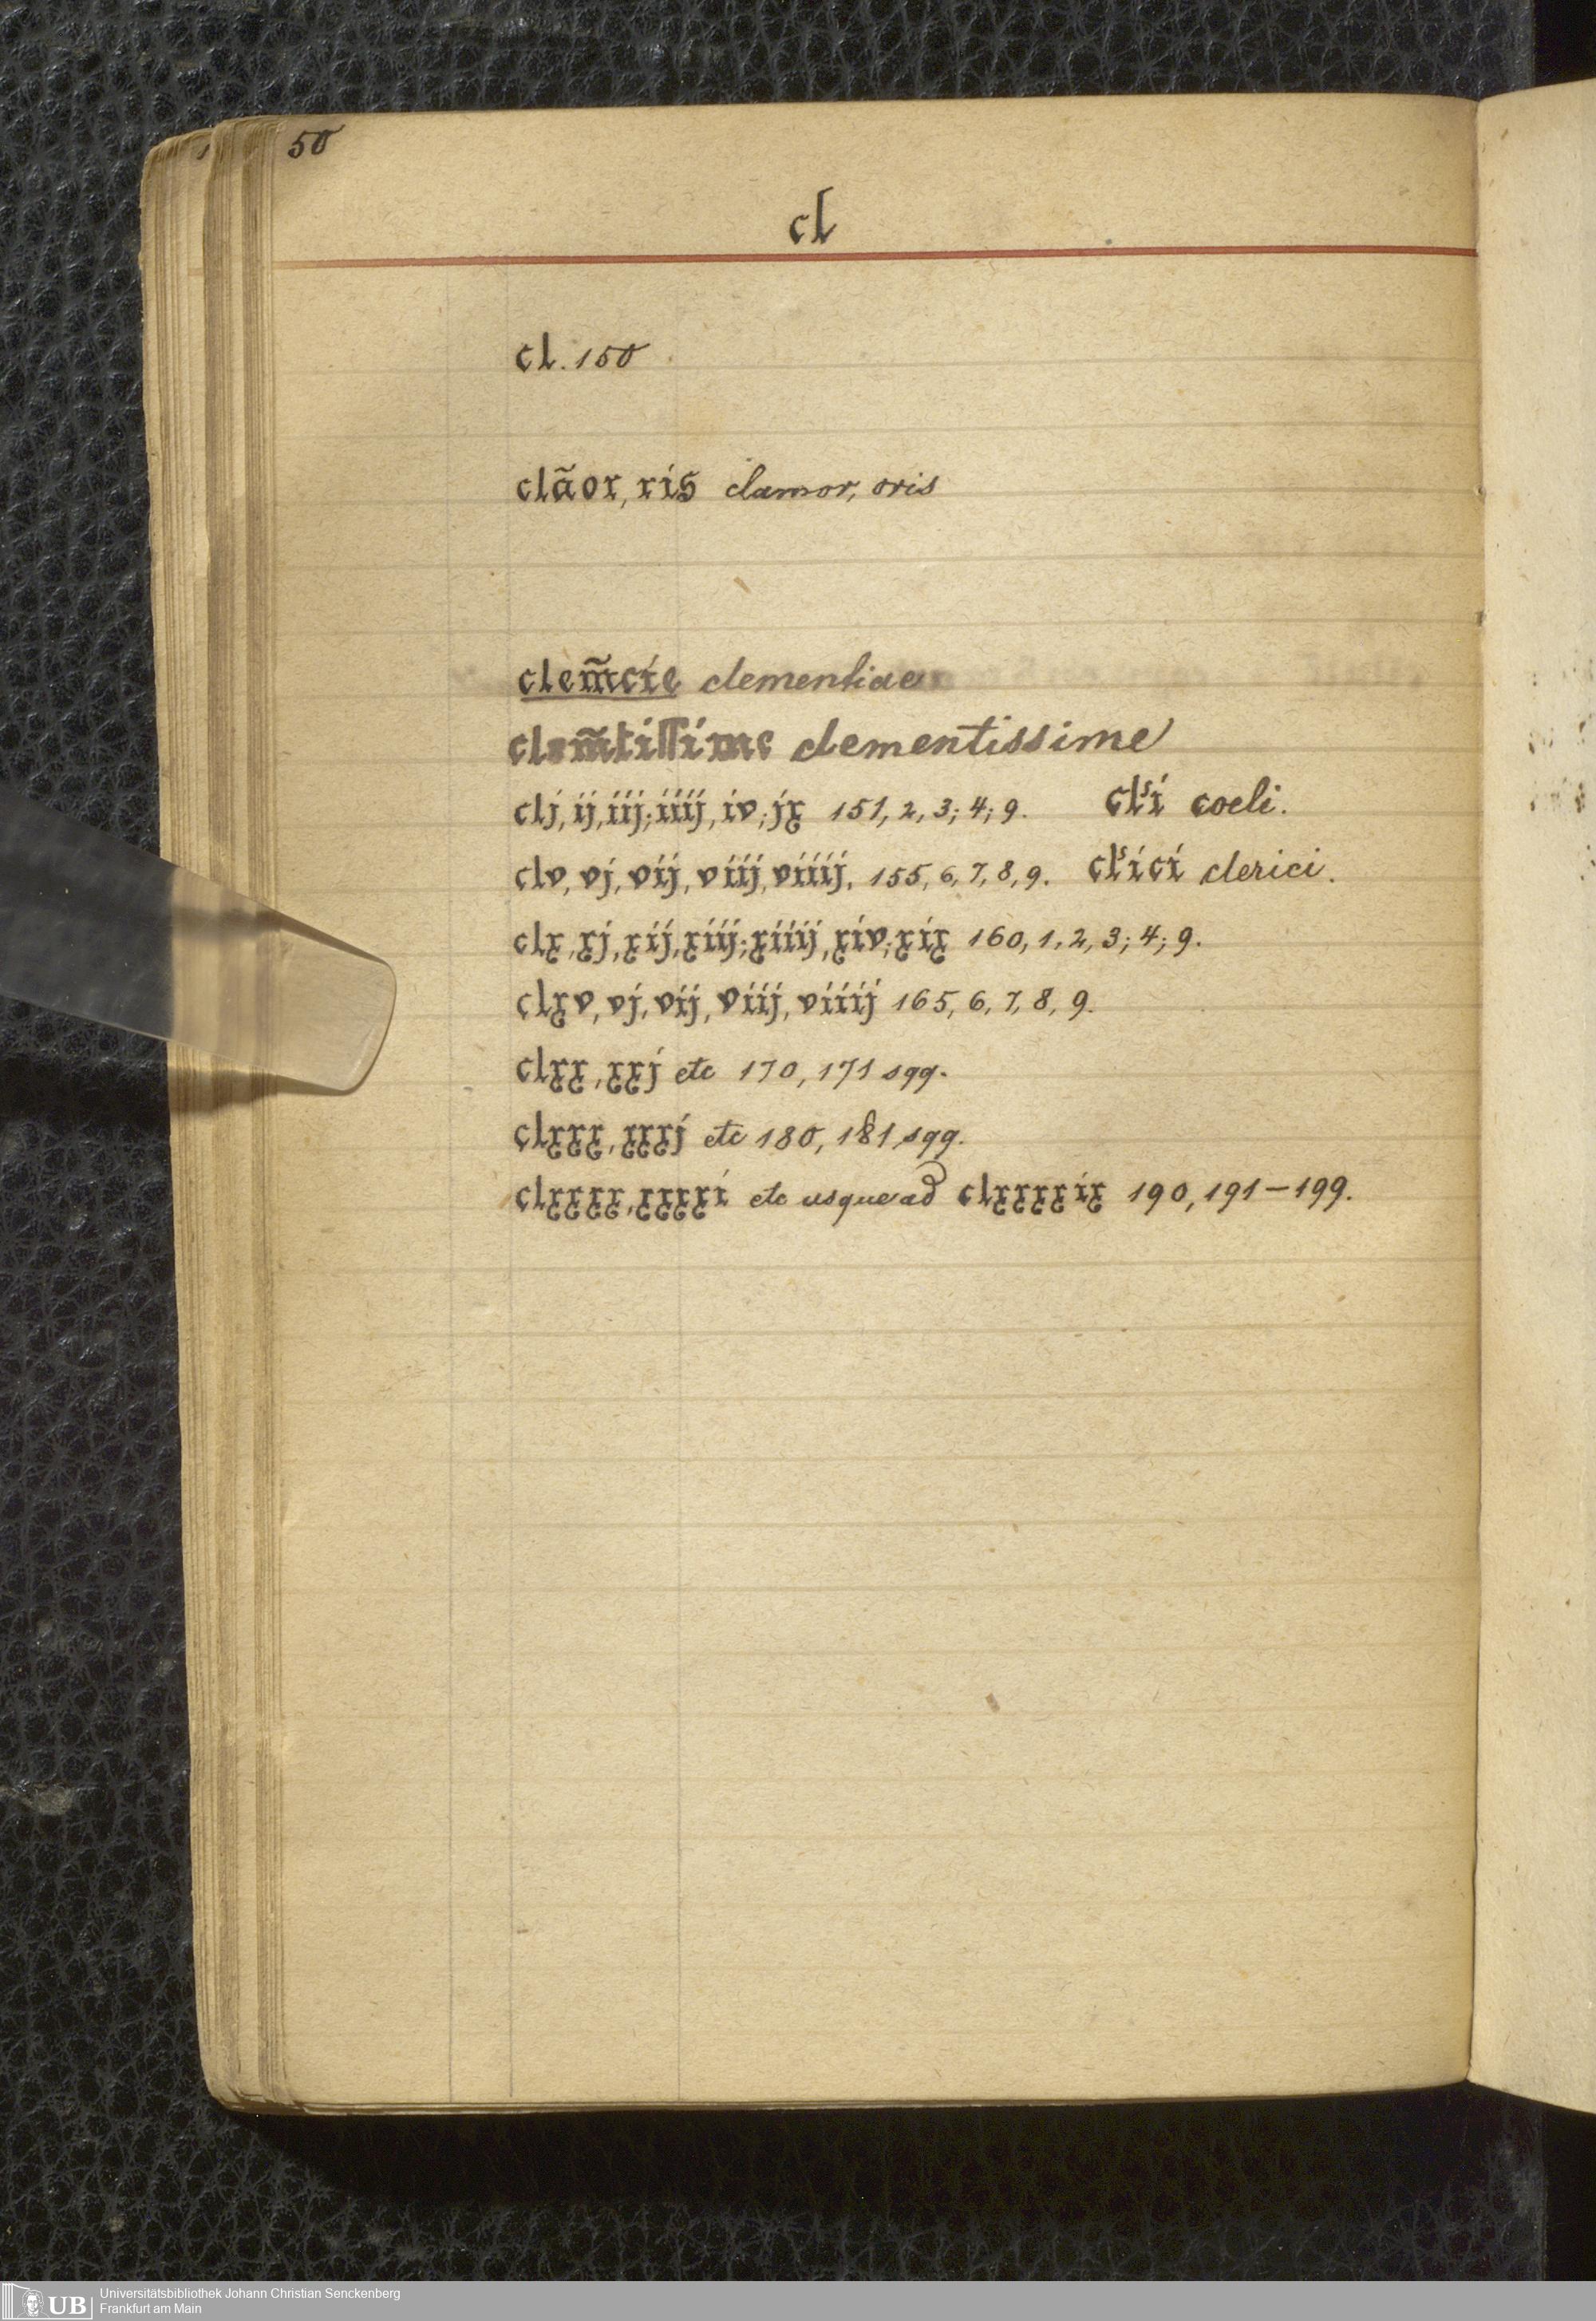 50
cl
cl. 150
clãor, ris clamor, oris
clem̃cie clementiae
clem̃tissime clementissime
clj, ij, iij; iiij, iv; jx 151, 2, 3; 4; 9. clˢi coeli.
clv, vj, vij, viij, viiij. 155, 6, 7, 8, 9. clˢici clerici.
clx, xj, xij, xiij; xiiij, xiv; xix 160, 1, 2, 3; 4; 9.
clxv, vj, vij, viij, viiij 165, 6, 7, 8, 9.
clxx, xxj etc 170, 171 sqq.
clxxx, xxxj etc 180, 181 sqq.
clxxxx, xxxxi etc usque ad clxxxxix 190, 191–199.
UB
Universitätsbibliothek Johann Christian Senckenberg
Frankfurt am Main